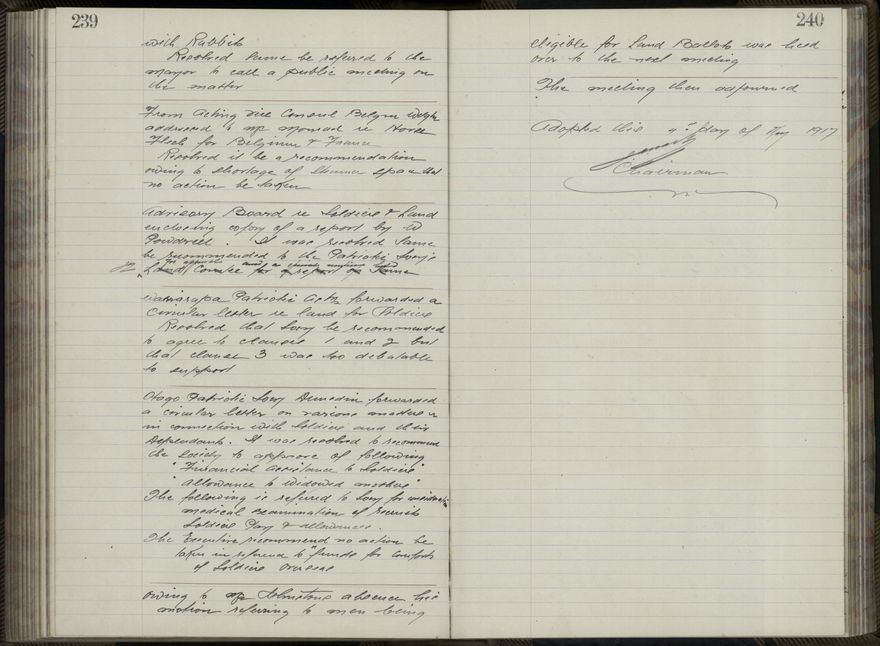 239
with Rabbits
Resolved same be referred to the
mayor to call a public meeting on
the matter
From Acting Vice Consul Belgium Wgtn
addressed to Mr re Horse
Flesh for Belgium & France
Resolved it be a recommendation
owing to shortage of Steamer space that
no action be taken
Advisory Board re Soldiers & Land
enclosing copy of a report by W
Powdrell. It was resolved same
be recommended to the Patriotic Socy's
Land Comtee for a report on same
Wairarapa Patriotic Assn forwarded a
circular letter re land for Soldiers
Resolved that Socy be recommended
to agree to clauses 1 and 2 but
that clause 3 was too debatable
to support
Otago Patriotic Socy Dunedin forwarded
a circular letter on various matters
in connection with Soldiers and their
Dependants. It was resolved to recommend
the Society to approve of following
"Financial Assistance to Soldiers"
"Allowance to widowed mothers"
The following is referred to Socy for consideration
medical examination of recruits
Soldiers Pay & allowances.
The Executive recommend no action be
taken in reference to "funds for comforts
of Soldiers Overseas
Owing to Mr Johnstons absence his
motion referring to men being
240
eligible for Land Ballots was held
over to the next meeting
The meeting then adjourned
Adopted this 4th day of 1917
Chairman